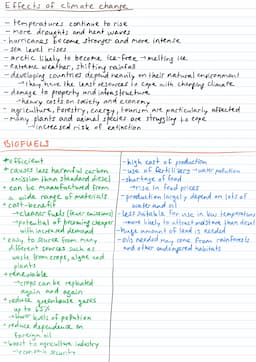 Effects of climate change
- temperatures continue to rise
- more droughts and heat waves
- hurricanes become stronger and more intense
- sea level rises
- arctic likely to become ice-free → melting ice
- extreme weather, shifting rainfall
- developing countries depend heavily on their natural environment
→ they have the least resources to cope with changing climate
- damage to property and infrastructure
→ heavy costs on society and economy
- agriculture, forestry, energy, tourism are particularly affected
- many plants and animal species are struggling to cope
→ increased risk of extinction
BIOFUELS
+ efficient
+ causes less harmful carbon
emission than standard diesel
+ can be manufactured from
a wide range of materials
+ cost-benefit
→ cleaner fuels (fewer emissions)
→ potential of becoming cheaper
with increased demand
+ easy to source from many
different sources such as
waste from crops, algae and
plants
+ renewable
→ crops can be replanted
again and again
+ reduce greenhouse gases
up to 65%
→ lower levels of pollution
+ reduce dependence on
foreign oil
+ boost to agriculture industry
→ economic security
- high cost of production
- use of fertilizers → water pollution
- shortage of food
→ rise in food prices
- production largely depend on lots of
water and oil
- less suitable for use in low temperatures
- more likely to attract moisture than diesel
- huge amount of land is needed
- oils needed may come from rainforests
and other endangered habitats